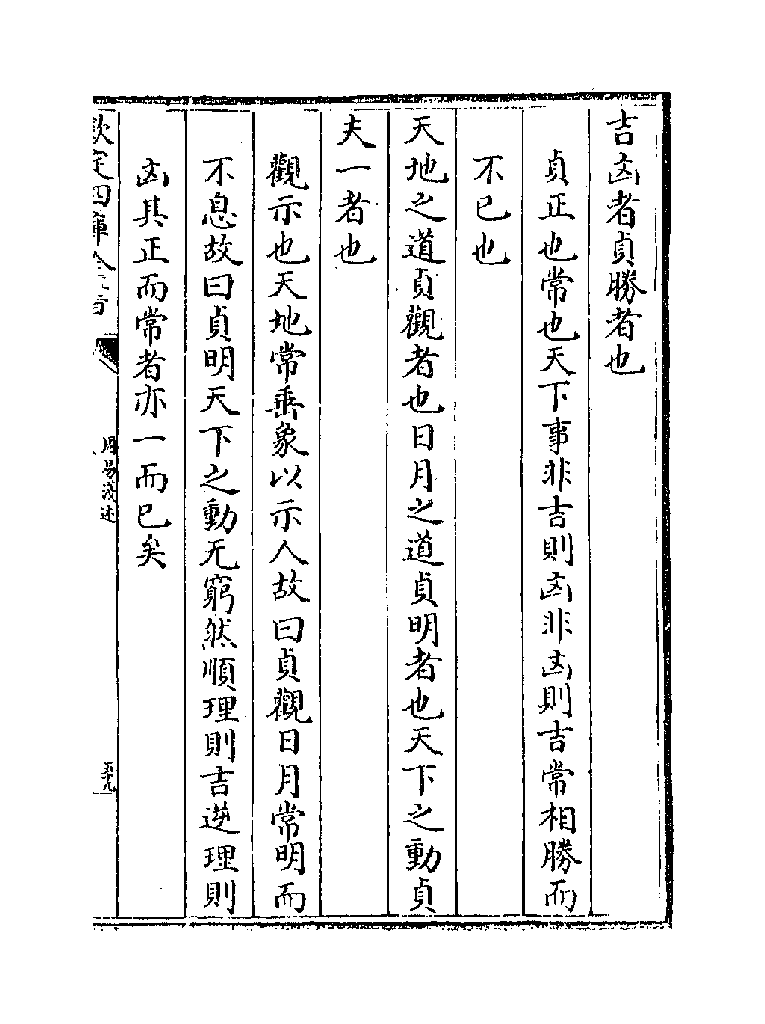 吉凶者貞勝者也
貞正也常也天下事非吉則凶非凶則吉常相勝而
不已也
天地之道貞觀者也日月之道貞明者也天下之動貞
夫一者也
觀示也天地常垂象以示人故曰貞觀日月常明而
不息故曰貞明天下之動无窮然順理則吉逆理則
凶其正而常者亦一而已矣
欽定四庫全書
周易淺述
五十九